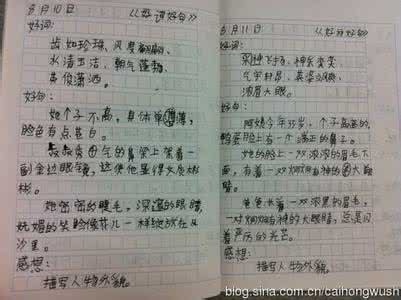 8月10日 《好词好句》
好词:
齿如珍珠、风度翩翩、
水清玉洁、朝气蓬勃、
英俊潇洒。
好句:
她个子不高,身体单薄,
脸色有点苍白。
秀气的鼻梁上架着一
副金边眼镜,这使他显得文质彬
彬。
她密密的睫毛,深邃的眼睛,
妩媚的笑脸像花儿一样绽放在
沙里。
感想:
描写人物外貌。
8月11日 《好词好句》
好词:
采神飞扬、神采奕奕、
气宇轩昂、英姿飒爽、
浓眉大眼。
好句:
阿姨今年35岁,个子高高的,
鸭蛋脸上有一个端正的鼻子。
她的脸上一双浓浓的眉毛下
面,有着一对炯炯有神的大眼
睛。
爸爸长着一双浓黑的眉毛,
一对炯炯有神的大眼睛,总是闪
着严厉的光芒。
感想:
描写人物外貌。
blog.sina.com.cn/caihongwush